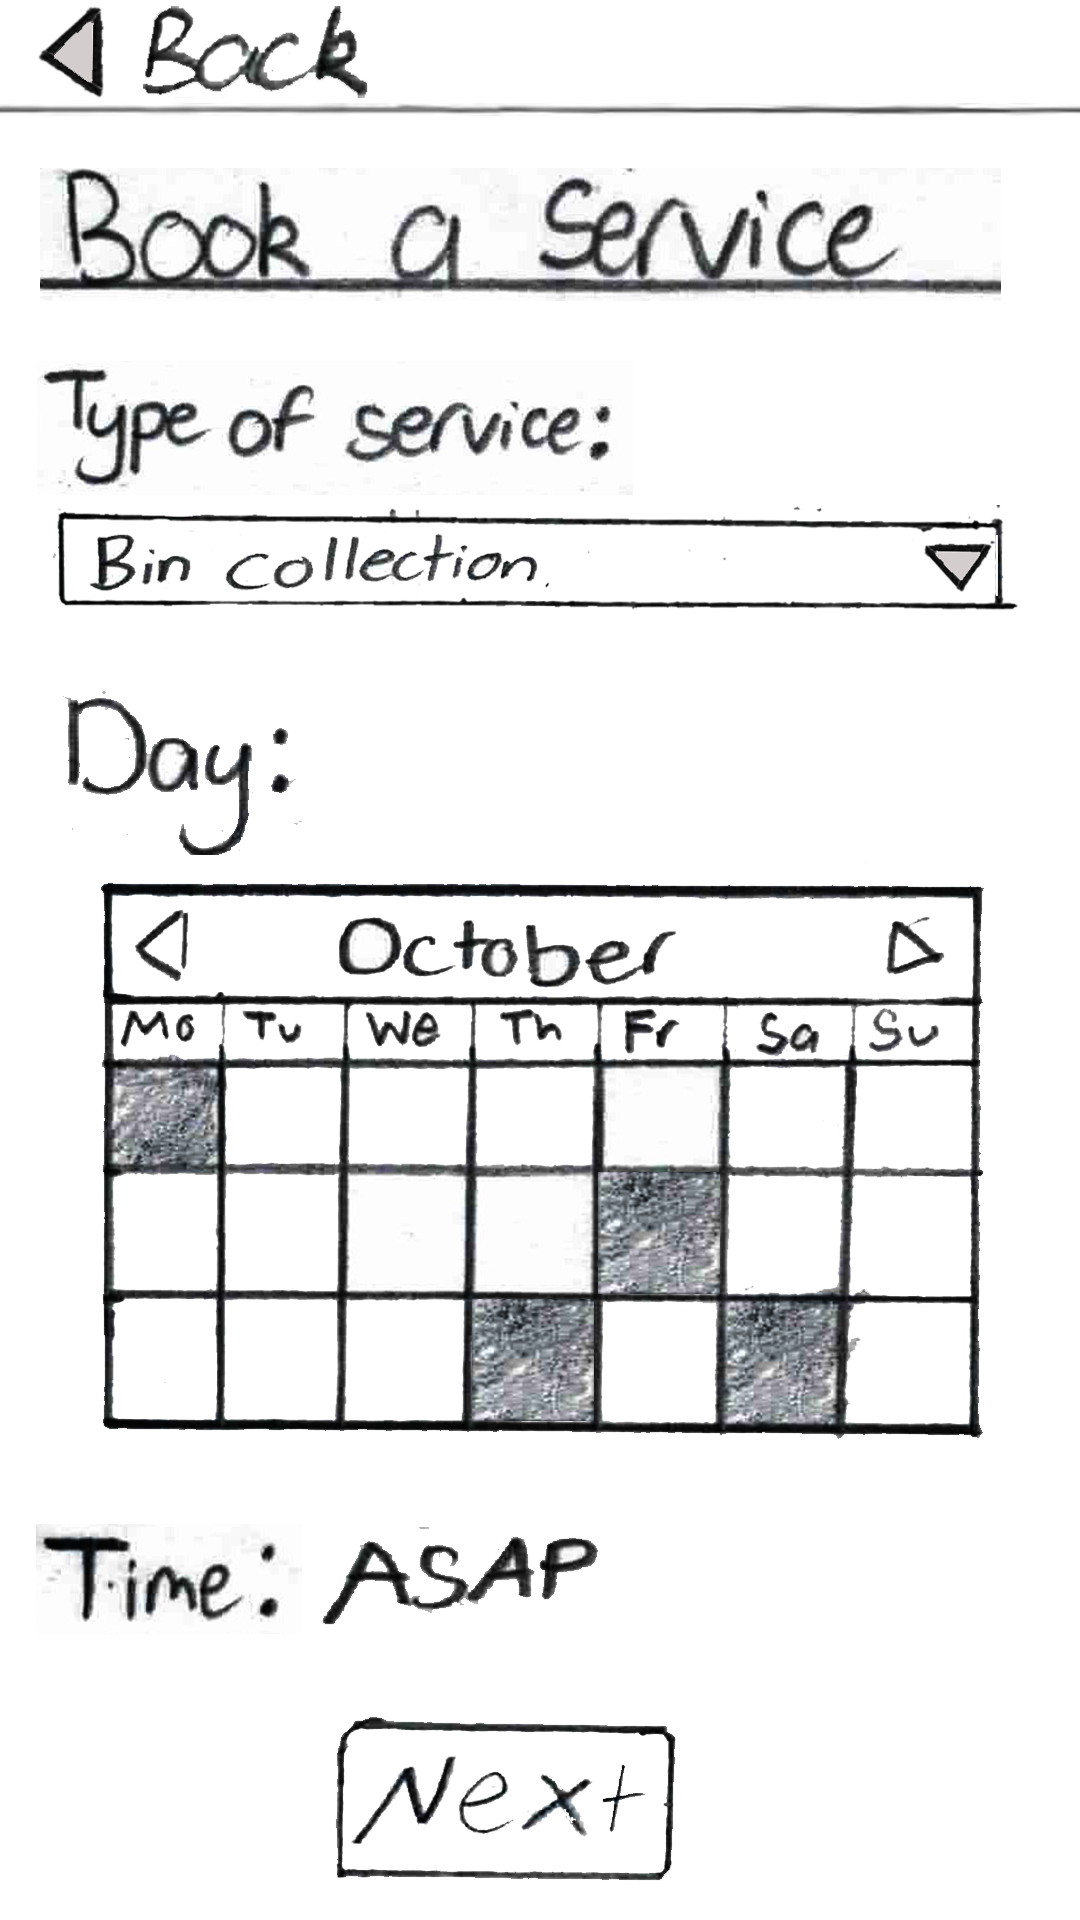 Back
Book a Service
Type of service:
Bin collection.
Day:
October
Mo Tu We Th Fr Sa Su
Time: ASAP
Next